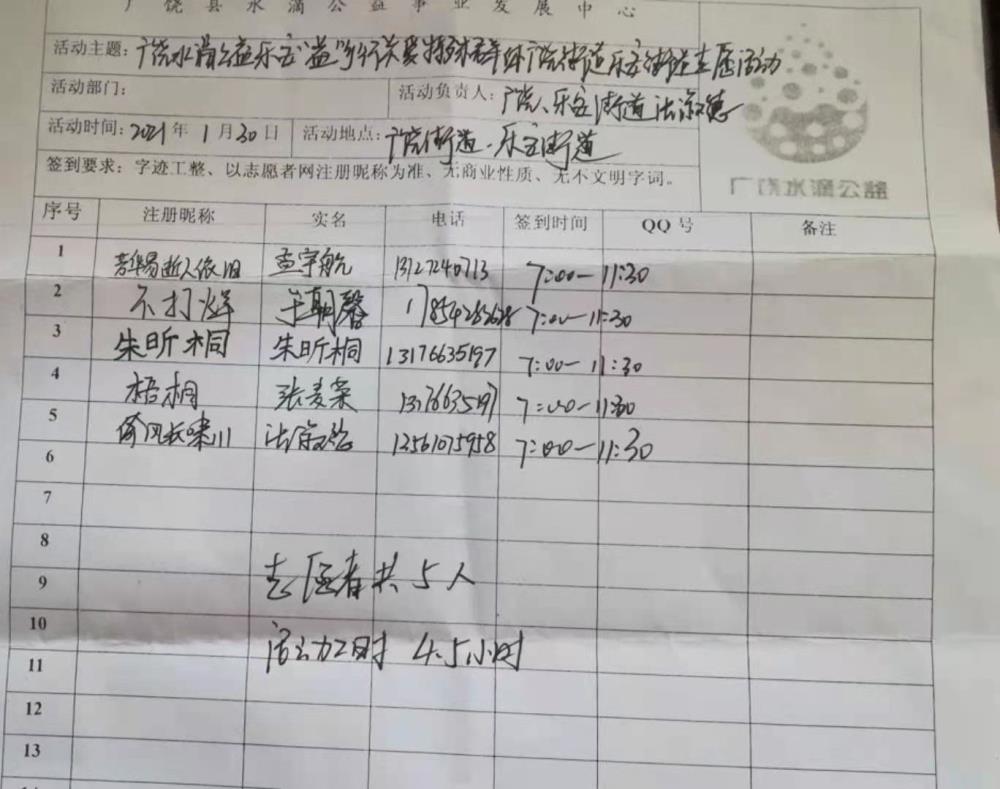 广饶县水滴公益事业发展中心
活动主题：广饶水滴公益乐安"益"乡行关爱特殊群体广饶街道乐安街道志愿活动
活动部门：
活动负责人：广饶、乐安街道
活动时间：2021年1月30日
活动地点：广饶街道·乐安街道
签到要求：字迹工整、以志愿者网注册昵称为准、无商业性质、无不文明字词。
广饶水滴公益
序号 注册昵称 实名 电话 签到时间 QQ号 备注
1 芳华易逝人依旧 孟宇航 13127240713 7:00-11:30
2 不打烊 朝馨 7:00-11:30
3 朱昕桐 朱昕桐 13176635197 7:00-11:30
4 梧桐 张麦荣 13176635197 7:00-11:30
5 倚风长啸川 12561075958 7:00-11:30
6
7
8
9 志愿者共5人
10
11 活动加时 4.5小时
12
13